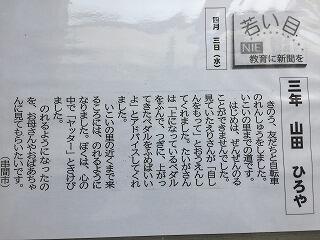 若い目
NIE 教育に新聞を
四月 三日(水)
三年 山田 ひろや
きのう、友だちと自転車
のれんしゅうをしました。
いこいの里までの道です。
はじめは、ぜんぜんのる
ことができませんでした。
見ていたえいさんが「自し
んをもって」とおうえんし
てくれました。たいがさん
は「上になっているペダル
をふんで、つぎに、上がっ
てきたペダルをふめばいい
よ」とアドバイスしてくれ
ました。
いこいの里の近くまで来
るころには、のれるように
なりました。ぼくは、心の
中で「ヤッター」とさけび
ました。
のれるようになったの
を、お母さんやおばあちゃ
んに見てもらいたいです。
(串間市)